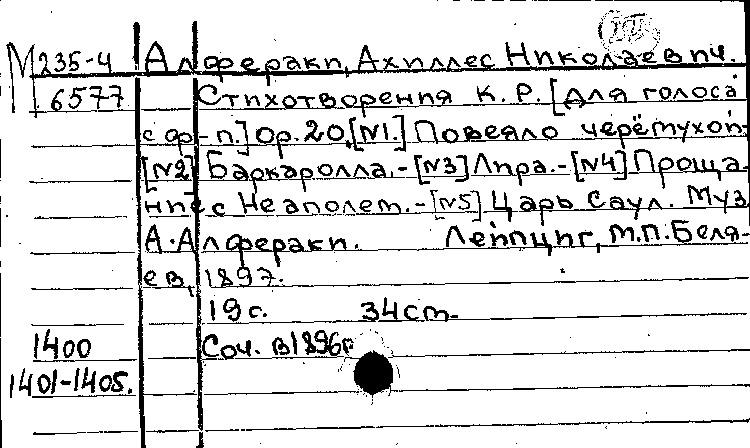 М 235-4 Алфераки, Ахиллес Николаевич.
6577 Стихотворения К. Р. [Для голоса
с ф.-п.] Ор. 20, [№1.] Повеяло черёмухой.-
[№2] Баркаролла.-[№3] Лира.-[№4] Проща-
ние с Неаполем.-[№5] Царь Саул. Муз
А. Алфераки. Лейпциг, М.П. Беля-
ев, 1897.
19 с. 34 см.
1400 Соч. в 1896 г
1401-1405.